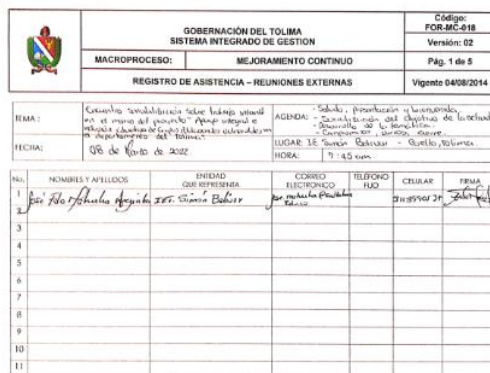 GOBERNACIÓN DEL TOLIMA
SISTEMA INTEGRADO DE GESTION
Código:
FOR-MC-018
Versión: 02
MACROPROCESO:
MEJORAMIENTO CONTINUO
Pág. 1 de 5
REGISTRO DE ASISTENCIA – REUNIONES EXTERNAS
Vigente 04/08/2014
TEMA :
Encuentro sensibilización sobre trabajo infantil
en el marco del proyecto "Apoyo integral e
departamento del Tolima"
AGENDA:
- Saludo, presentación y bienvenida,
- Socialización del objetivo de la actividad
- Desarrollo de la temática.
- Compromisos, varios, cierre.
FECHA:
08 de Marzo de 2022
LUGAR: I.E Simón Bolívar - Coello, Tolima.
HORA:
7:45 am
No.
NOMBRES Y APELLIDOS
ENTIDAD
QUE REPRESENTA
CORREO
ELECTRONICO
TELÉFONO
FIJO
CELULAR
FIRMA
1
José I.E. Simón Bolívar
2
3
4
5
6
7
8
9
10
11